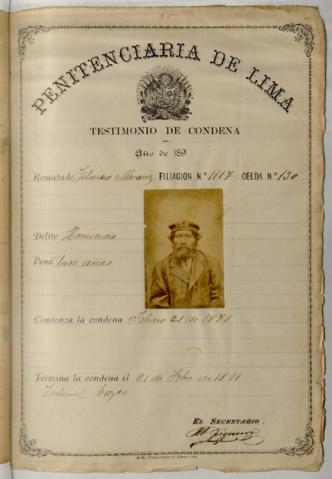 55
PENITENCIARIA DE LIMA
TESTIMONIO DE CONDENA
Año de 189
Rematado FILIACION N.° 1117 CELDA N.° 130
Delito Homicidio
Pena años
Comienza la condena Febrero 21 de 1898
Termina la condena el 21 de Feb. de
Tribunal Cuzco
EL SECRETARIO.